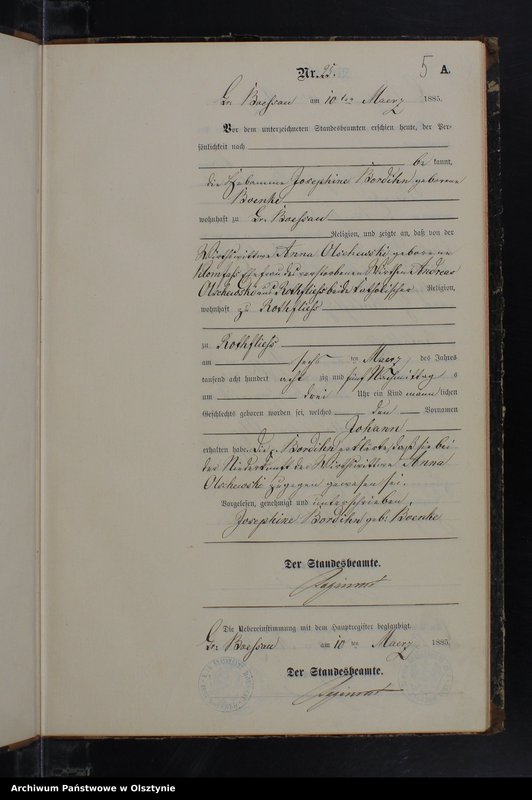 Nr. 25.
5
A.
Gr. Boessau am 10 ten Maerz 1885.
Vor dem unterzeichneten Standesbeamten erschien heute, der Per-
sönlichkeit nach
be kannt,
die Hebamme Josephine Bordihn geborene
Boenke
wohnhaft zu Gr. Boessau
Religion, und zeigte an, daß von der
Wirthswittwe Anna Olschewski geborene
Ehefrau des verstorbenen Wirthen Andreas
Olschewski aus Rothfliess beide katholischer Religion,
wohnhaft zu Rothfliess
zu Rothfliess
am sechs ten Maerz des Jahres
tausend acht hundert acht zig und fünf Nachmittag s
um drei Uhr ein Kind männ lichen
Geschlechts geboren worden sei, welches den Vornamen
Johann
erhalten habe. Die p. Bordihn erklärte, dass sie bei
der Niederkunft der Wirthswittwe Anna
Olschewski zugegen gewesen sei.
Vorgelesen, genehmigt und unterschrieben.
Josephine Bordihn geb: Boenke
Der Standesbeamte.
Die Uebereinstimmung mit dem Hauptregister beglaubigt.
Gr. Boessau am 10 ten Maerz 1885.
Der Standesbeamte.
Archiwum Państwowe w Olsztynie